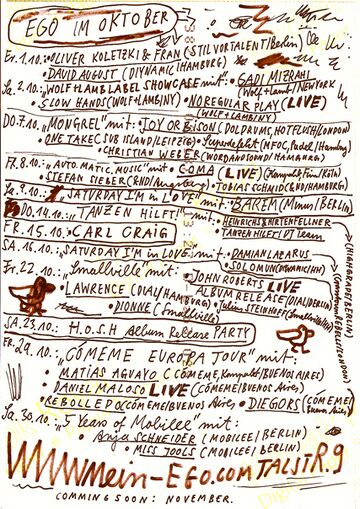 EGO IM OKTOBER
Fr. 1.10.: • OLIVER KOLETZKI & FRAN (STIL VOR TALENT/Berlin)
• DAVID AUGUST (DIYNAMIC/HAMBURG)
Sa. 2.10.: "WOLF + LAMB LABEL SHOWCASE mit: • GADI MIZRAHI
(Wolf + Lamb/NEW YORK
• SLOW HANDS (WOLF + LAMB/NY) • NO REGULAR PLAY (LIVE)
(WOLF + LAMB/NY)
DO. 7.10.: "MONGREL" mit: JOY ORBISON (DOLDRUMS, HOTFLUSH/LONDON)
ONE TAKE (SUB ISLAND/LEIPZIG)
• CHRISTIAN WEBER (WORDANDSOUND/HAMBURG)
FR. 8.10.: "AUTOMATIC MUSIC" mit • COMA (LIVE) (Kompakt/Köln)
• STEFAN SIEBER (&ND/Augsburg) • TOBIAS SCHMID (&ND/HAMBURG)
Sa. 9.10.: "SATURDAY I'M IN LOVE" mit: • BAREM (Minus/BERLIN)
DO. 14.10.: "TANZEN HILFT" mit: • HEINRICHS & HIRTENFELLNER
(SUPDUB/BERLIN)
• TANZEN HILFT DJ TEAM
FR. 15.10.: CARL CRAIG
SA. 16.10.: "SATURDAY I'M IN LOVE" mit: • DAMIAN LAZARUS
(Crosstown Rebels/LONDON)
• SOLOMUN (DIYNAMIC/HH)
Fr. 22.10.: "Smallville" mit: • JOHN ROBERTS LIVE
ALBUM RELEASE (DIAL/BERLIN)
• LAWRENCE (DIAL/HAMBURG) • Julius STEINHOFF (Smallville/HH)
• DIONNE (Smallville)
SA. 23.10.: H.O.S.H Album Release PARTY
FR. 29.10.: "CÓMEME EUROPA TOUR" mit:
• MATIAS AGUAYO (CÓMEME, Kompakt/BUENOS AIRES)
DANIEL MALOSO LIVE (CÓMEME/Buenos Aires)
• REBOLLEDO (CÓMEME/Buenos Aires • DIEGORS (CÓMEME/
Buenos Aires)
Sa. 30.10.: "5 Years of Mobilee" mit:
• Anja SCHNEIDER (MOBILEE/BERLIN)
• MISS JOOLS (MOBILEE/BERLIN)
WWW.mein-EGO.com TALSTR. 9
COMMING SOON: NOVEMBER.